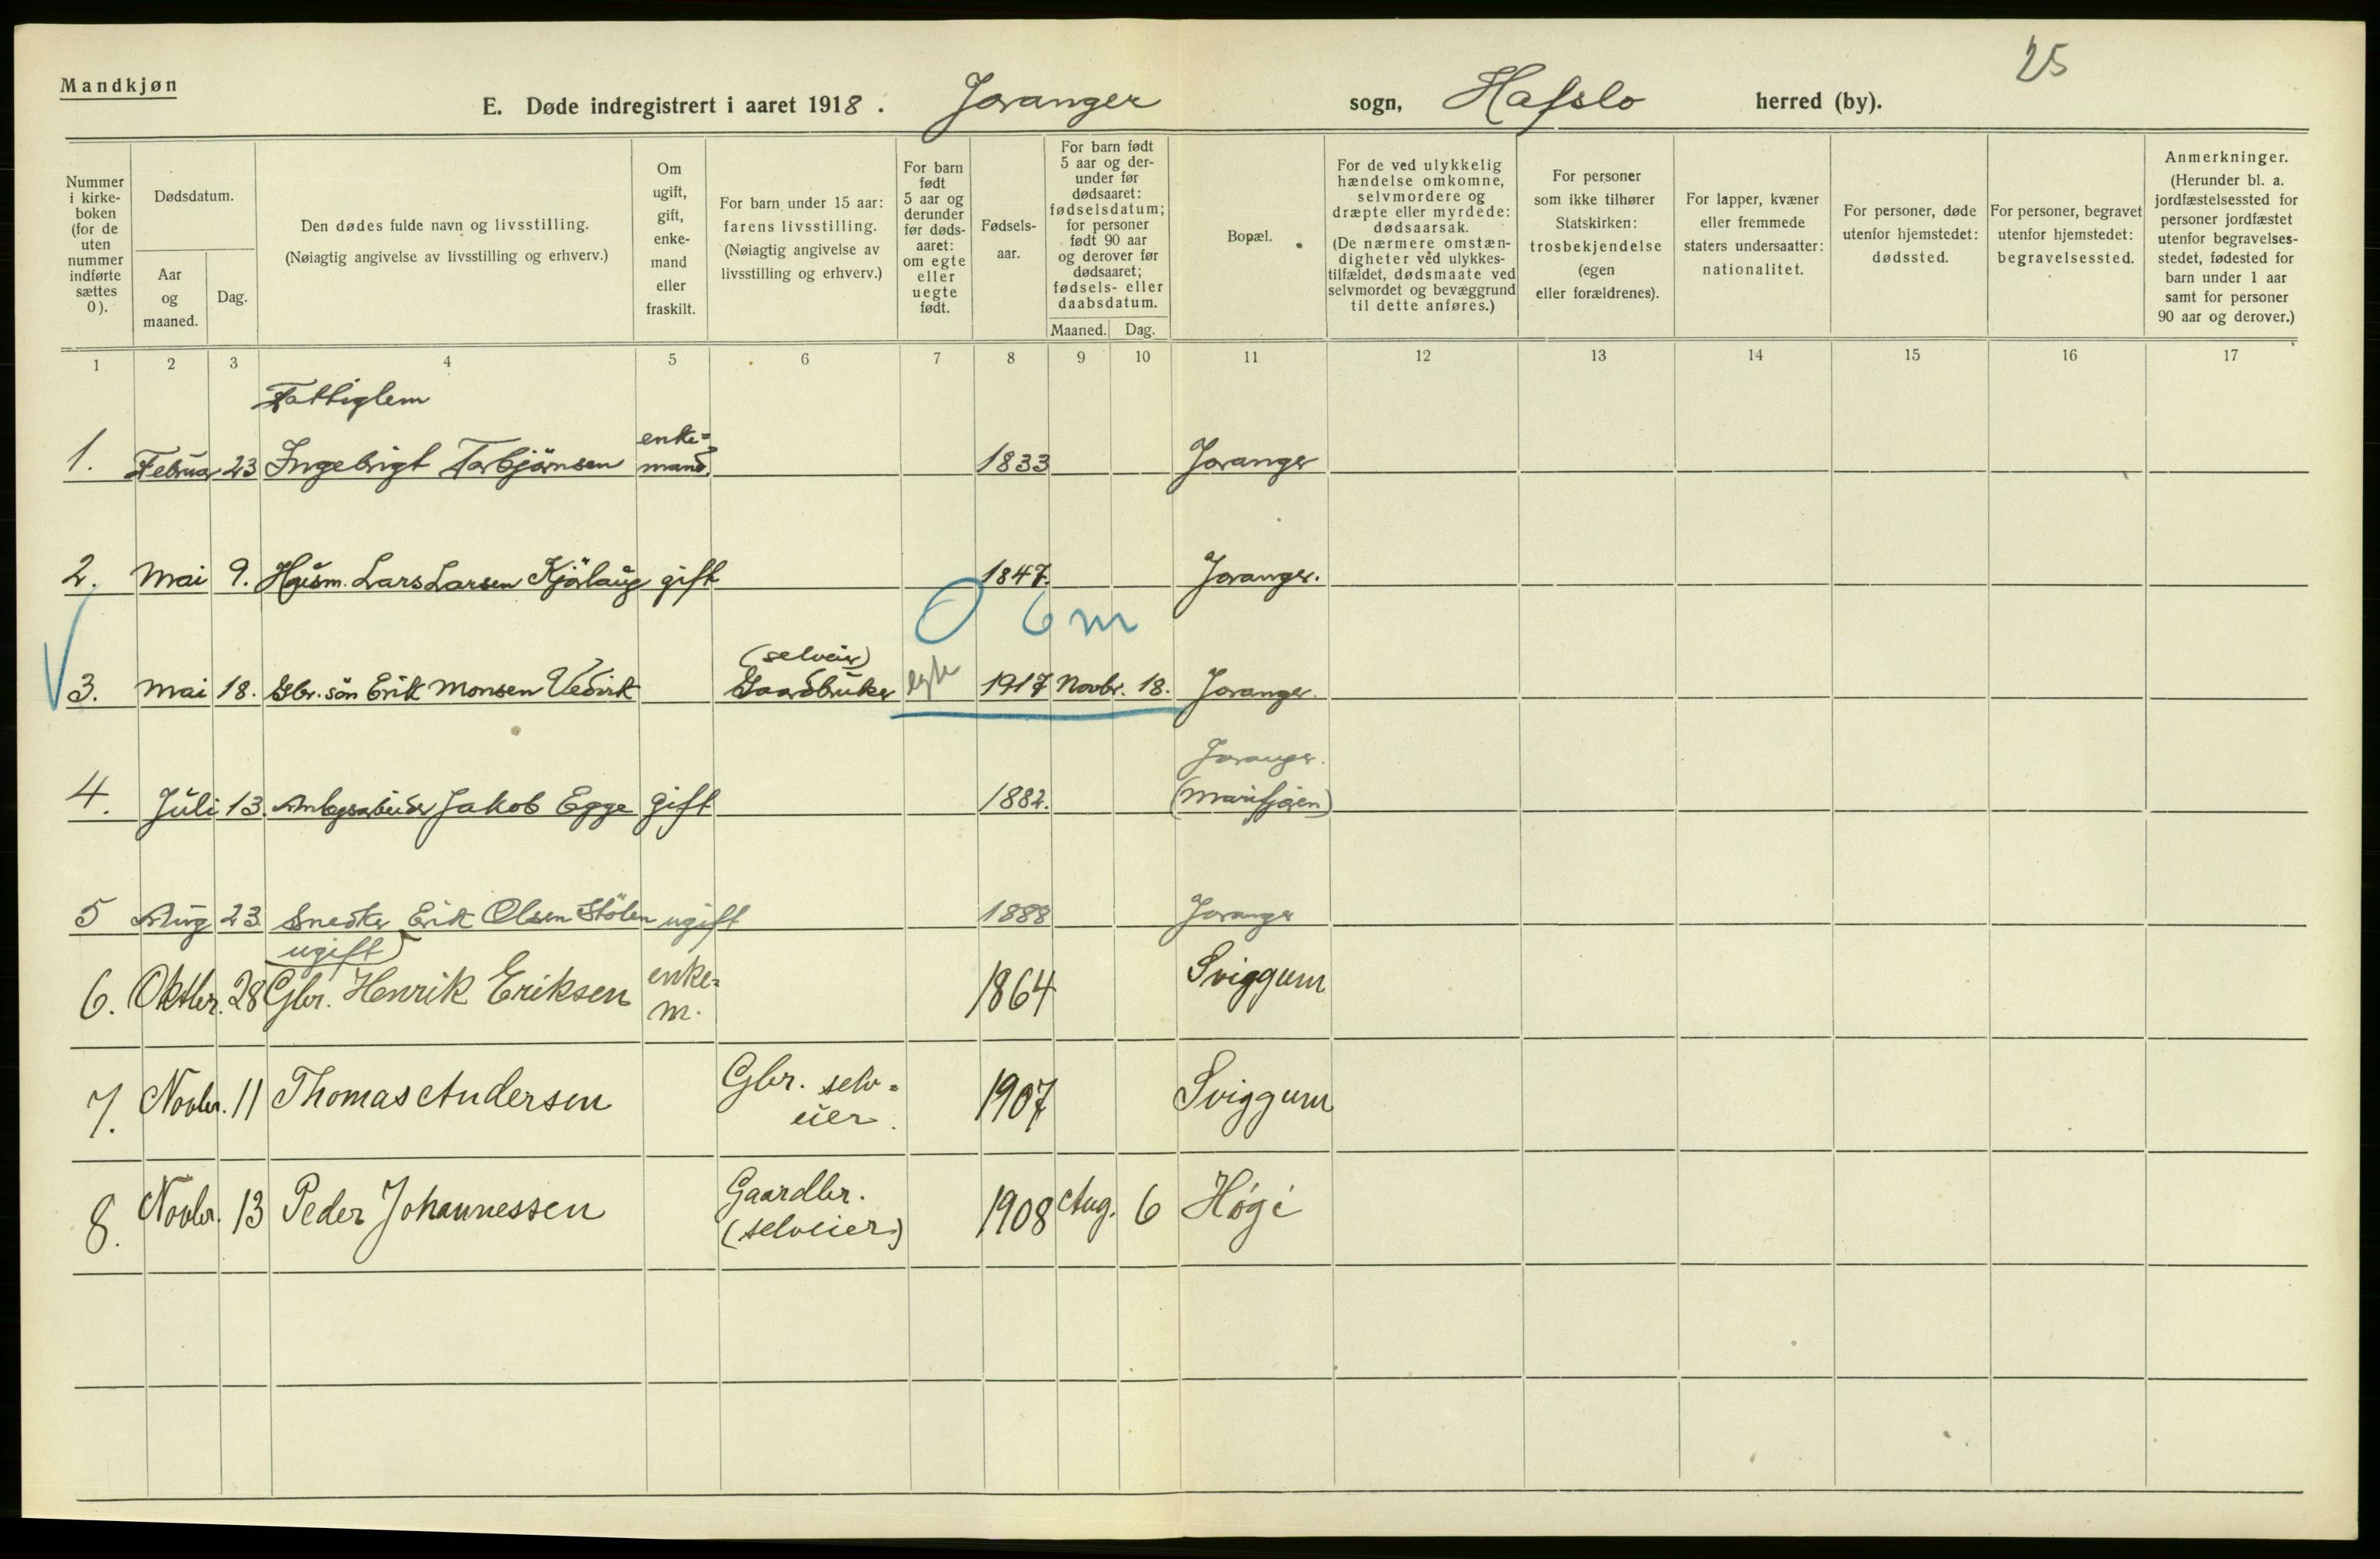 25
Mandkjøn
E. Døde indregistrert i aaret 1918. Joranger sogn, Hafslo herred (by).
Nummer i kirke-boken (for de uten nummer indførte sættes 0).
Dødsdatum.
Aar og maaned.
Dag.
Den dødes fulde navn og livsstilling.
(Nøiagtig angivelse av livsstilling og erhverv.)
Om ugift, gift, enke-mand eller fraskilt.
For barn under 15 aar: farens livsstilling.
(Nøiagtig angivelse av livsstilling og erhverv.)
For barn født 5 aar og derunder før døds-aaret: om egte eller uegte født.
Fødsels-aar.
For barn født 5 aar og der-under før dødsaaret: fødselsdatum; for personer født 90 aar og derover før dødsaaret; fødsels- eller daabsdatum.
Maaned. Dag.
Bopæl.
For de ved ulykkelig hændelse omkomne, selvmordere og dræpte eller myrdede: dødsaarsak.
(De nærmere omstæn-digheter ved ulykkes-tilfældet, dødsmaate ved selvmordet og bevæggrund til dette anføres.)
For personer som ikke tilhører Statskirken: trosbekjendelse (egen eller forældrenes).
For lapper, kvæner eller fremmede staters undersaatter: nationalitet.
For personer, døde utenfor hjemstedet: dødssted.
For personer, begravet utenfor hjemstedet: begravelsessted.
Anmerkninger.
(Herunder bl. a. jordfæstelsessted for personer jordfæstet utenfor begravelses-stedet, fødested for barn under 1 aar samt for personer 90 aar og derover.)
1 2 3 4 5 6 7 8 9 10 11 12 13 14 15 16 17
Fattiglem
enke=
1. Februar 23 Ingebrigt Torbjörnsen mand. 1833 Joranger
2. Mai 9. Husm. Lars Larsen Kjörlaug gift 1847. Joranger.
0 6 m
(selveier)
3. Mai 18. Gbr. sön Erik Monsen Vedvik Gaardbruker egte 1917 Novbr. 18. Joranger.
Joranger.
4. Juli 13. Anlegsarbeider Jakob Egge gift 1882. (Marifjøren)
5 Aug 23. Snedker Erik Olsen Stölen ugift 1888 Joranger
ugift) enke=
6. Oktbr. 28 Gbr. Henrik Eriksen m. 1864 Sviggum
7. Novbr. 11 Thomas Andersen Gbr. selv=
eier. 1907 Sviggum
8. Novbr. 13 Peder Johannessen Gaardbr.
(selveier) 1908 Aug. 6 Høgi